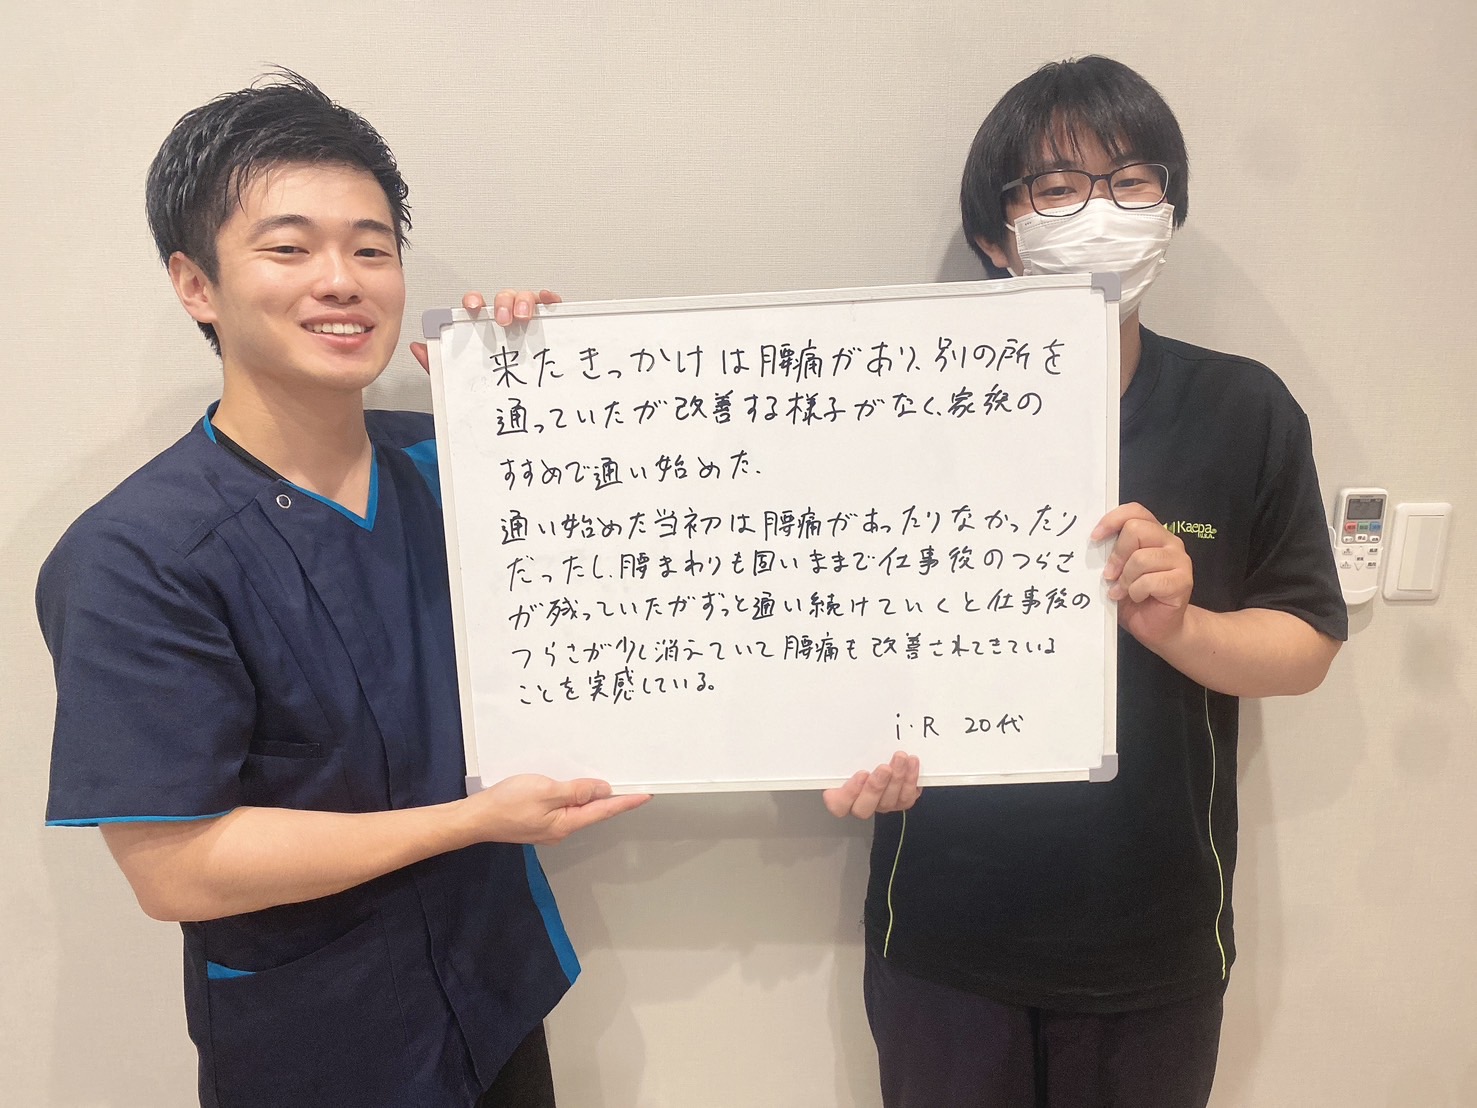 来たきっかけは腰痛があり、別の所を
通っていたが改善する様子がなく、家族の
すすめで通い始めた、
通い始めた当初は腰痛があったりなかったり
だったし、腰まわりも固いままで仕事後のつらさ
が残っていたがずっと通い続けていくと仕事後の
つらさが少し消えていて腰痛も改善されてきている
ことを実感している。
i・R 20代
Kaepa
U.S.A.